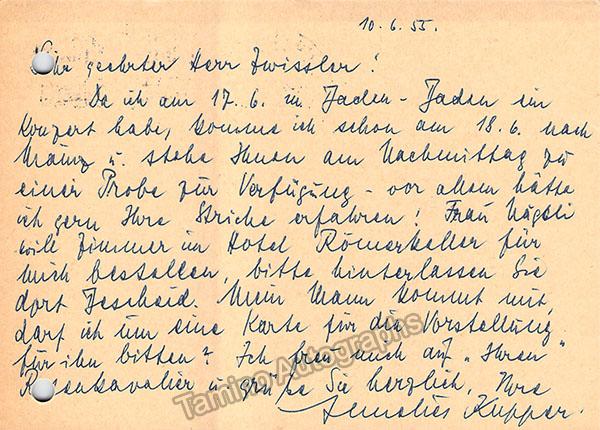 10. 6. 55.
Sehr geehrter Herr Zwissler!
Da ich am 17. 6. in Baden-Baden ein
Konzert habe, komme ich schon am 18. 6. nach
Mainz u. stehe Ihnen am Nachmittag zu
einer Probe zur Verfügung - vor allem hätte
ich gern Ihre Striche erfahren! Frau Nägeli
will Zimmer im Hotel Römerkeller für
mich bestellen, bitte hinterlassen Sie
dort Bescheid. Mein Mann kommt mit,
darf ich um eine Karte für die Vorstellung
für ihn bitten? Ich freu mich auf "Ihren"
Rosenkavalier u. grüße Sie herzlich, Ihre
Annelies Kupper.
Tamino Autographs